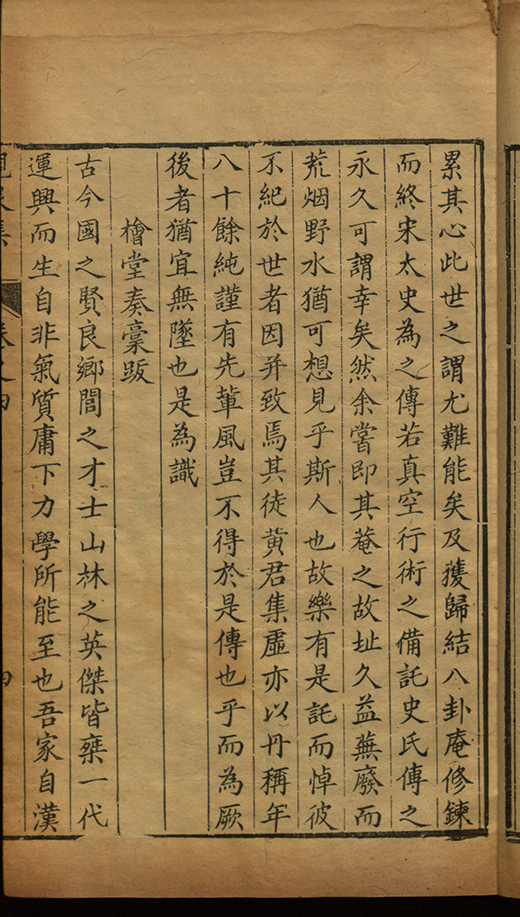 累其心此世之謂尤難能矣及獲歸結八卦庵修鍊
而終宋太史為之傳若真空行術之備託史氏傳之
永久可謂幸矣然余嘗即其菴之故址久益蕪廢而
荒烟野水猶可想見乎斯人也故樂有是託而悼彼
不紀於世者因并致焉其徒黄君集虛亦以丹稱年
八十餘純謹有先輩風豈不得於是傳也乎而為厥
後者猶宜無墜也是為識
檜堂奏稾跋
古今國之賢良鄉閭之才士山林之英傑皆乘一代
運興而生自非氣質庸下力學所能至也吾家自漢